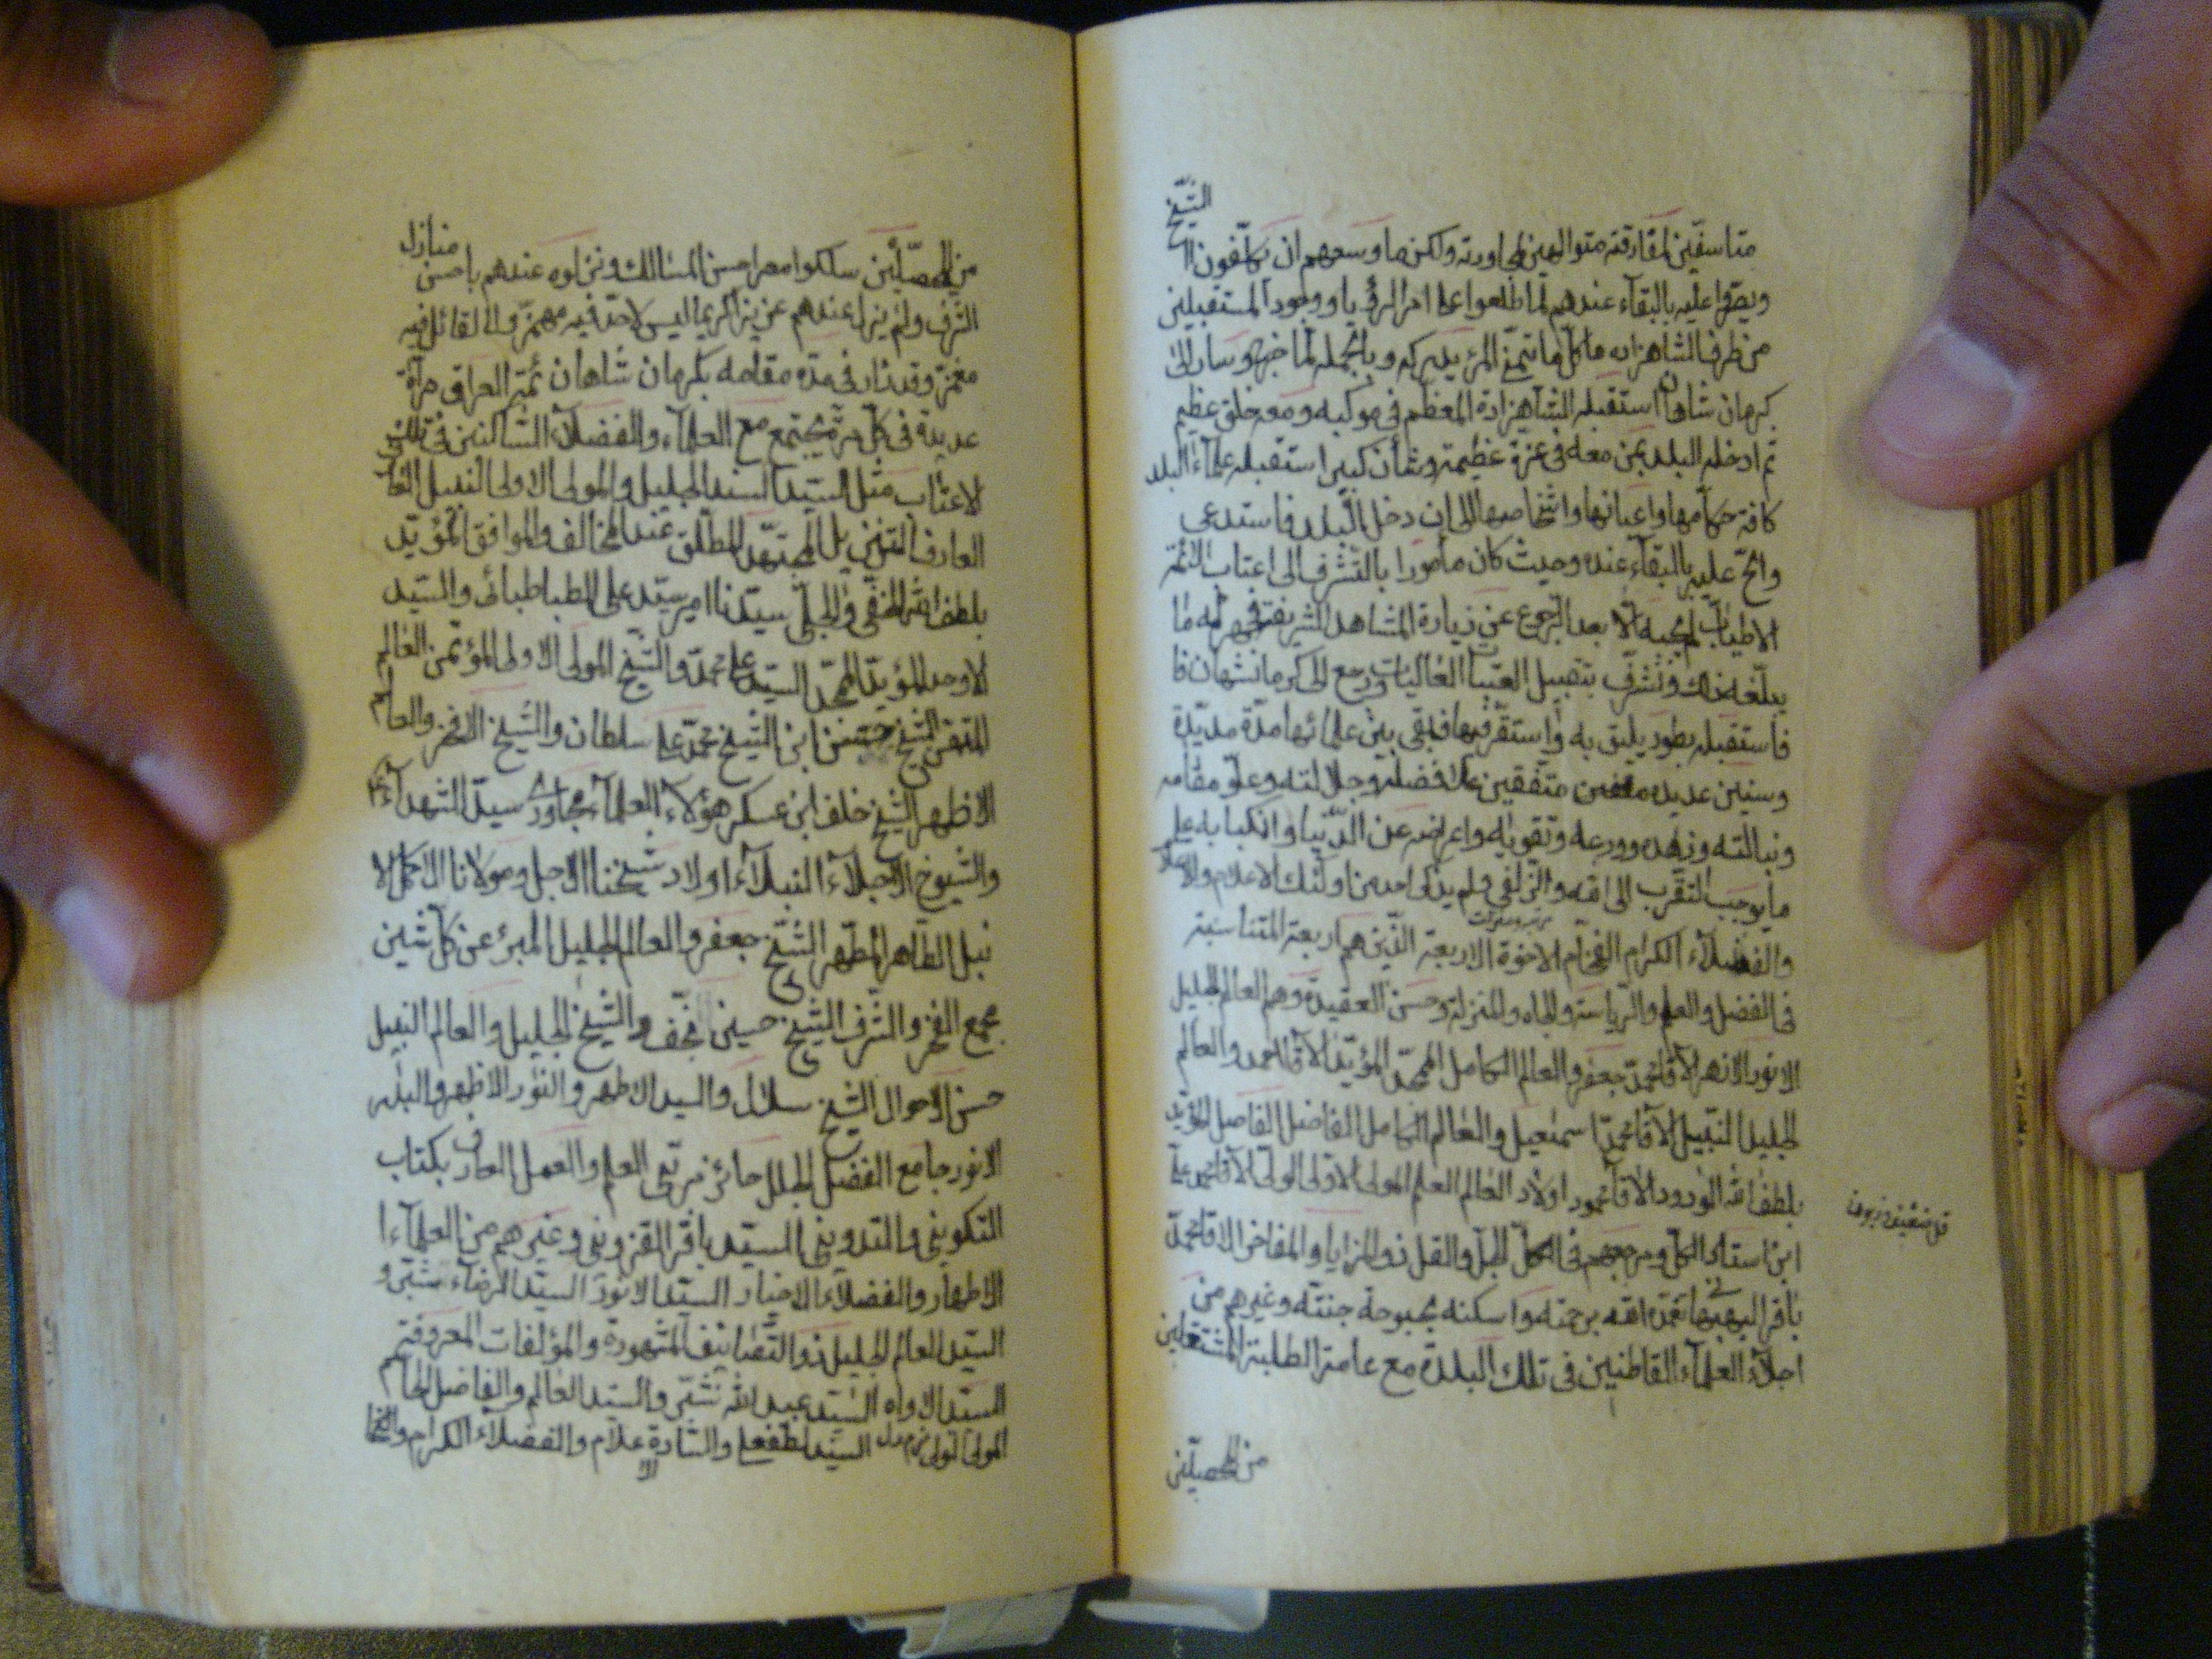 الشيخ
متاسفين لمفارقته متوالهين لمجاورته ولكن ما وسعهم ان يكلفون
ويصروا عليه بالبقآء عندهم لما اطلعوا على امر الرؤيا ووجود المستقبلين
من طرف الشاهزاده ما كل ما يتمنى المرء يدركه وبالجمله لما خرج وسار الى
كرمان شاهان استقبله الشاهزادة المعظم فى موكبه ومعه خلق عظيم
ثم ادخله البلد بمن معه فى عزة عظيمة وشأن كبير استقبله علمآء البلد
كافة حكامها واعيانها واشخاصها الى ان دخل البلد فاستدعى
والح عليه بالبقآء عنده وحيث كان مأمورا بالتشرف الى اعتاب الائمة
الاطياب لم يجبه الا بعد الرجوع عن زيارة المشاهد الشريفة فجهز له ما
يبلغه ذلك وتشرف بتقبيل العتبات العاليات ورجع الى كرمانشهان
فاستقبله بطور يليق به واستقر فيها فبقى بين علمائها مدة مديدة
وسنين عديدة متفقين على فضله وجلالته وعلو مقامه
ونبالته وزهده وورعه وتقويه واعراضه عن الدنيا وانكبابه على
ما يوجب التقرب الى الله والزلفى ولم يذكر احد من اولئك الاعلام
والفضلآء الكرام الفخام الاخوة الاربعة الذين هم اربعة المتناسبة
فى الفضل والعلم والرياسة والجاه والمنزلة وحسن العقيدة وهم العالم الجليل
الانور الازهر الآقا محمد جعفر والعالم الكامل الممجد المؤيد الآقا احمد والعالم
الجليل النبيل الآقا محمد اسمعيل والعالم الكامل الفاضل الفاصل المؤيد
بلطف الله الودود الآقا محمود اولاد العالم العلم المولى الاولى الولى الآقا محمد على
ابن استاد الكل ومرجعهم فى الكل الجل والقل ذو المزايا والمفاخر الآقا محمد
باقر البهبهانى تغمده الله برحمته واسكنه بحبوحة جنته وغيرهم من
اجلآء العلمآء القاطنين فى تلك البلدة مع عامة الطلبة المشتغلين
من المحصلين
من المحصلين سلكوا معه احسن المسالك ونزلوه عندهم باحسن منازل
الشرف ولم يزل عندهم عزيزا كريما ليس لاحد فيه مهمز ولا لقائل فيه
مغمز وقد زار فى مدة مقامه بكرمان شاهان ائمة العراق مرآة
عديدة فى كل مرة يجتمع مع العلمآء والفضلآء الساكنين فى تلك
الاعتاب مثل السيد السند الجليل والمولى الاولى النبيل
العارف التنزيل المجتهد المطلق عند المخالف والموافق المؤيد
بلطف الله الخفى والجلى سيدنا امير سيد على الطباطبائى والسيد
الاوحد المؤيد الممجد السيد على محمد والشيخ المولى الاولى المؤتمن العالم
المتقن الشيخ حسن ابن الشيخ محمد على سلطان والشيخ الافخر والعلم
الاظهر الشيخ خلف ابن عسكر هؤلاء العلمآء مجاورى سيد الشهدآء
والشيوخ الاجلآء النبلآء اولاد شيخنا الاجل ومولانا الاكمل الا
نبل الطاهر المطهر الشيخ جعفر والعالم الجليل المبرء عن كل شين
مجمع الفخر والشرف الشيخ حسين نجف والشيخ الجليل والعالم النبيل
حسن الاحوال الشيخ سلال والسيد الاطهر والنور الاظهر والبدر
الانور جامع الفضل الجلل حائز مرتبتى العلم والعمل العارف بكتاب
التكوينى والتدوينى السيد باقر القزوينى وغيرهم من العلمآء
الاطهار والفضلآء الاخيار السيد الانور السيد الرضاء شبر و
السيد العالم الجليل ذو التصانيف المشهودة والمؤلفات المعروفة
السيد الاواه السيد عبد الله شبر والسيد العالم والفاضل الحاكم
السيد لطفعلى والسادة الاعلام والفضلآء الكرام